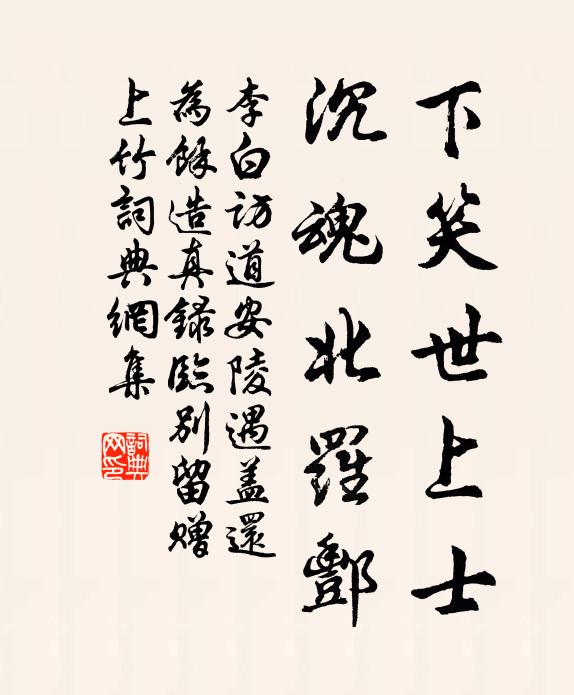 下笑世上士
沉魂北羅酆
李白訪道安陵遇蓋還
為餘造真錄臨別留贈
上竹詞典網集
詞典網印